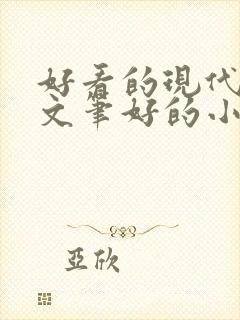 好看的現代
文筆好的小
亞欣